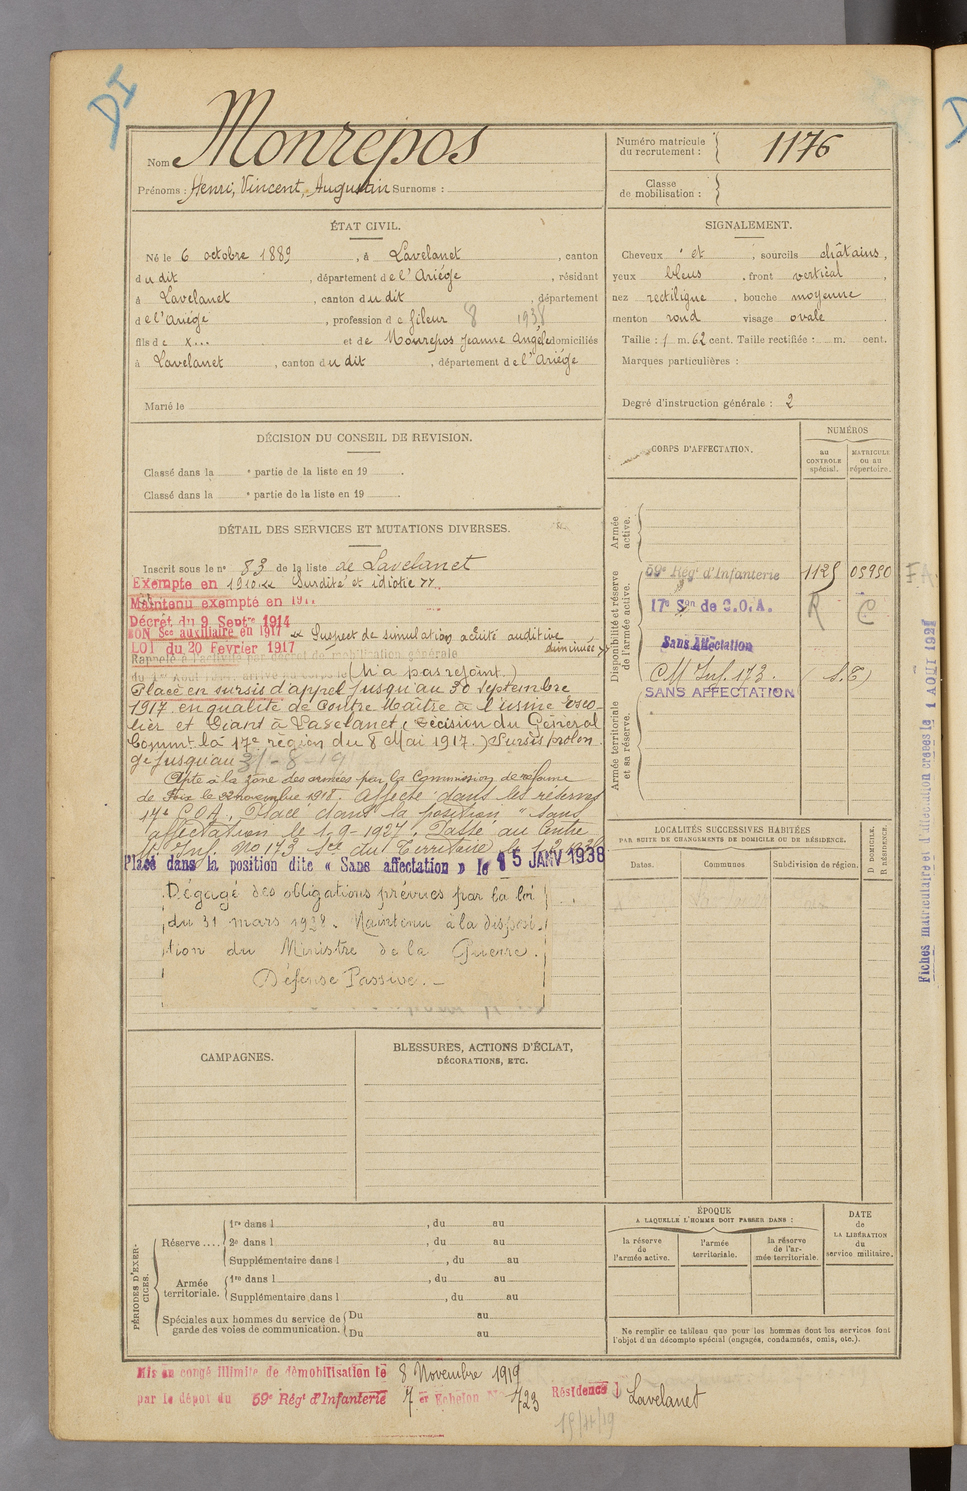 DI
Nom Monrepos
Prénoms : Henri, Vincent, Augustin Surnoms :
Numéro matricule du recrutement : 1176
Classe de mobilisation :
ÉTAT CIVIL.
Né le 6 octobre 1889, à Lavelanet, canton
du dit, département de l'Ariége, résidant
à Lavelanet, canton du dit, département
de l'Ariége, profession de fileur 8 1938
fils de x... et de Monrepos Jeanne Angèle domiciliés
à Lavelanet, canton du dit, département de l'Ariége
Marié le
SIGNALEMENT.
Cheveux et, sourcils châtains,
yeux bleus, front vertical,
nez rectiligne, bouche moyenne,
menton rond visage ovale.
Taille : 1 m. 62 cent. Taille rectifiée : m. cent.
Marques particulières :
Degré d'instruction générale : 2
DÉCISION DU CONSEIL DE REVISION.
Classé dans la e partie de la liste en 19 .
Classé dans la e partie de la liste en 19 .
DÉTAIL DES SERVICES ET MUTATIONS DIVERSES.
Inscrit sous le no 83 de la liste de Lavelanet
Exempté en 1910 « Surdité et idiotie ».
Maintenu exempté en 19
Décret du 9 Septre 1914
BON Sce auxiliaire en 1917 « Suspect de simulation acuité auditive
LOI du 20 Fevrier 1917 diminuée »
Rappelé à l'activité par décret de mobilisation générale
du 1er Août 1914, arrivé au corps le (N'a pas rejoint.)
Placé en sursis d'appel jusqu'au 30 septembre
1917 en qualité de Contre Maître à l'usine
et à Lavelanet (Décision du Général
Commt la 17e région du 8 Mai 1917.) Sursis prolon
gé jusqu'au 31-8-19
Apte à la zone des armées par la Commission de réforme
de Foix le 22 novembre 1918. Affecté dans les réserves
17e C.O.A. Placé dans la position "Sans
affectation le 1-9-1927. Passé au Centre
M. Inf. No 173 Sce du Territoire le
Placé dans la position dite « Sans affectation » le 15 JANV 1938
Dégagé des obligations prévues par la loi
du 31 mars 1928. Maintenu à la disposi-
tion du Ministre de la Guerre.
Défense Passive.-
CORPS D'AFFECTATION.
NUMÉROS
au CONTROLE spécial.
MATRICULE ou au répertoire.
Armée active.
Disponibilité et réserve de l'armée active.
59e Régt d'Infanterie 1125 05950
17e Son de C.O.A. R C
Sans Affectation
CM Inf. 173 (S.T)
SANS AFFECTATION
Armée territoriale et sa réserve.
LOCALITÉS SUCCESSIVES HABITÉES
PAR SUITE DE CHANGEMENTS DE DOMICILE OU DE RÉSIDENCE.
Dates.
Communes
Subdivision de région.
D DOMICILE.
R RÉSIDENCE.
Fiches matriculaire et d'affectation créées le 1 AOUT 192
CAMPAGNES.
BLESSURES, ACTIONS D'ÉCLAT,
DÉCORATIONS, ETC.
PÉRIODES D'EXERCICES.
Réserve ....
1re dans l , du au
2e dans l , du au
Supplémentaire dans l , du au
Armée territoriale.
1re dans l , du au
Supplémentaire dans l , du au
Spéciales aux hommes du service de garde des voies de communication.
Du au
Du au
ÉPOQUE
A LAQUELLE L'HOMME DOIT PASSER DANS :
la réserve de l'armée active.
l'armée territoriale.
la réserve de l'armée territoriale.
DATE de LA LIBÉRATION du service militaire.
Ne remplir ce tableau que pour les hommes dont les services font
l'objet d'un décompte spécial (engagés, condamnés, omis, etc.).
Mis en congé illimité de démobilisation le 8 Novembre 1919
par le dépot du 59e Régt d'Infanterie 7 er Echelon No 723 Résidence Lavelanet
15/11/19